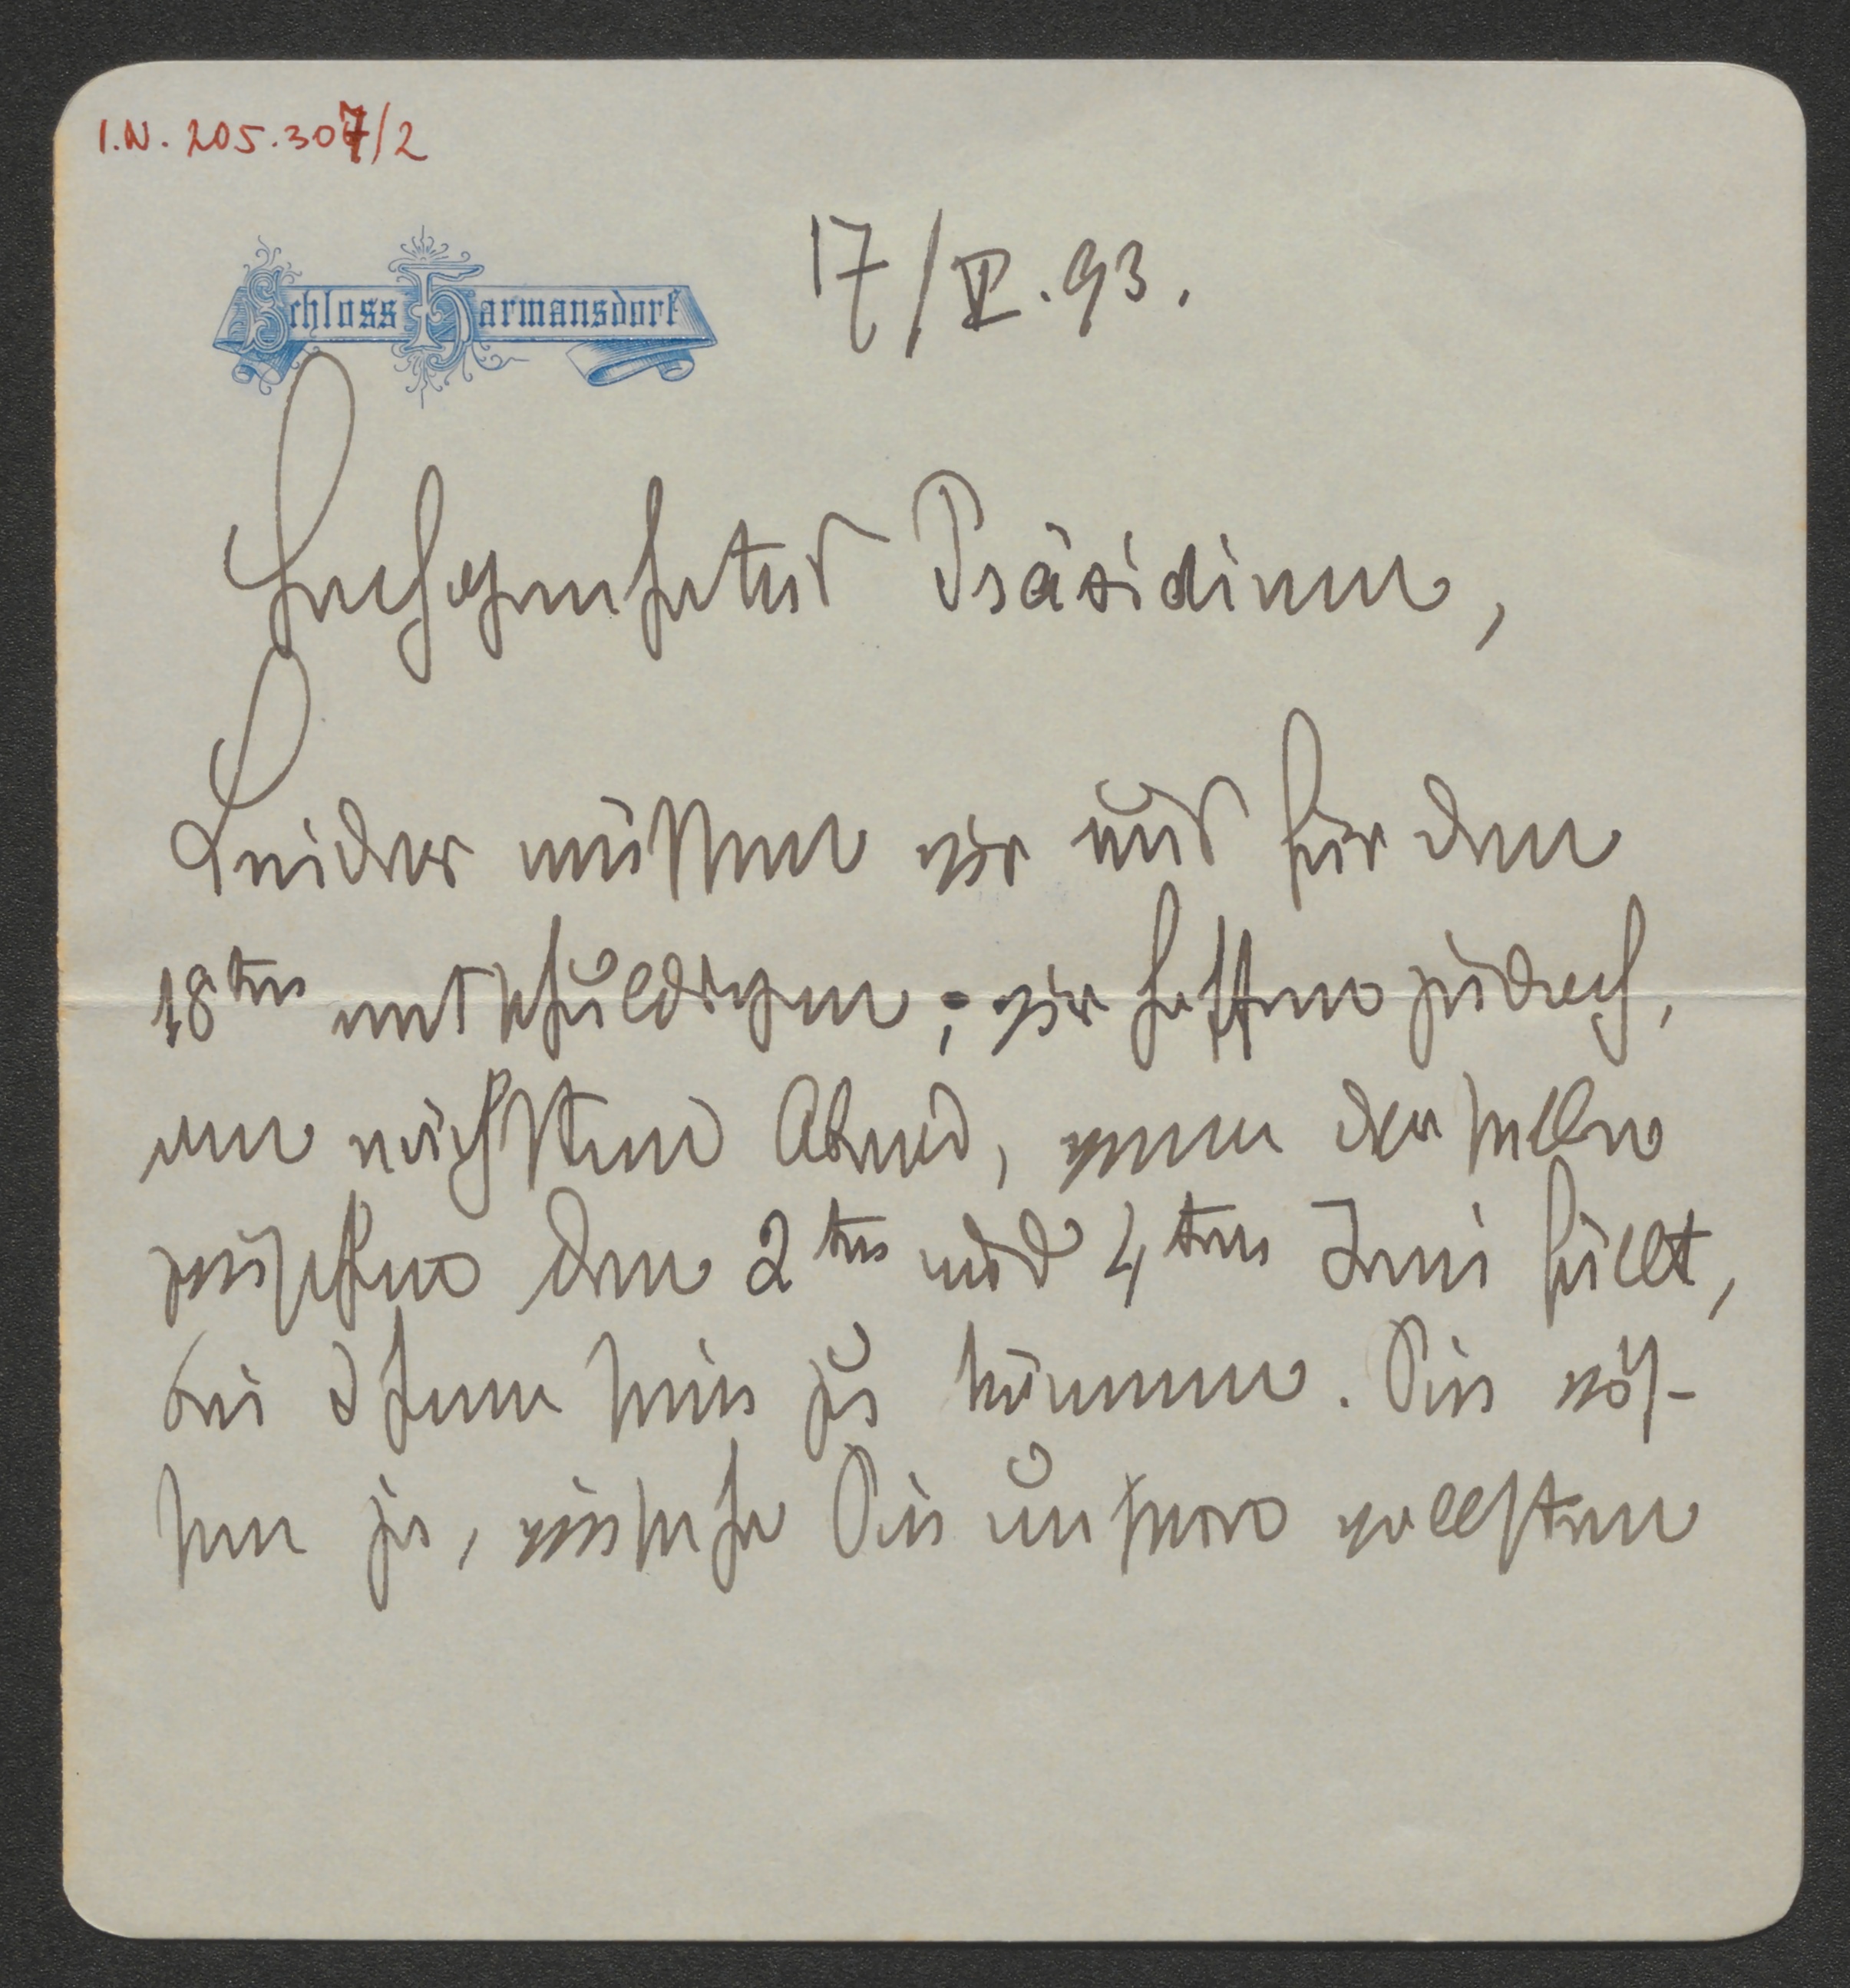 I.N. 205.307/2
Schloss Harmansdorf
17/V. 93.
Hochgeehrtes Präsidium,
Leider müssen wir uns für den
18ten entschuldigen; wir hoffen jedoch,
am nächsten Abend, wenn derselbe
zwischen den 2ten und 4ten Juni fällt,
bei Ihnen sein zu können. Sie wis-
sen ja, wie sehr Sie unseren vollsten